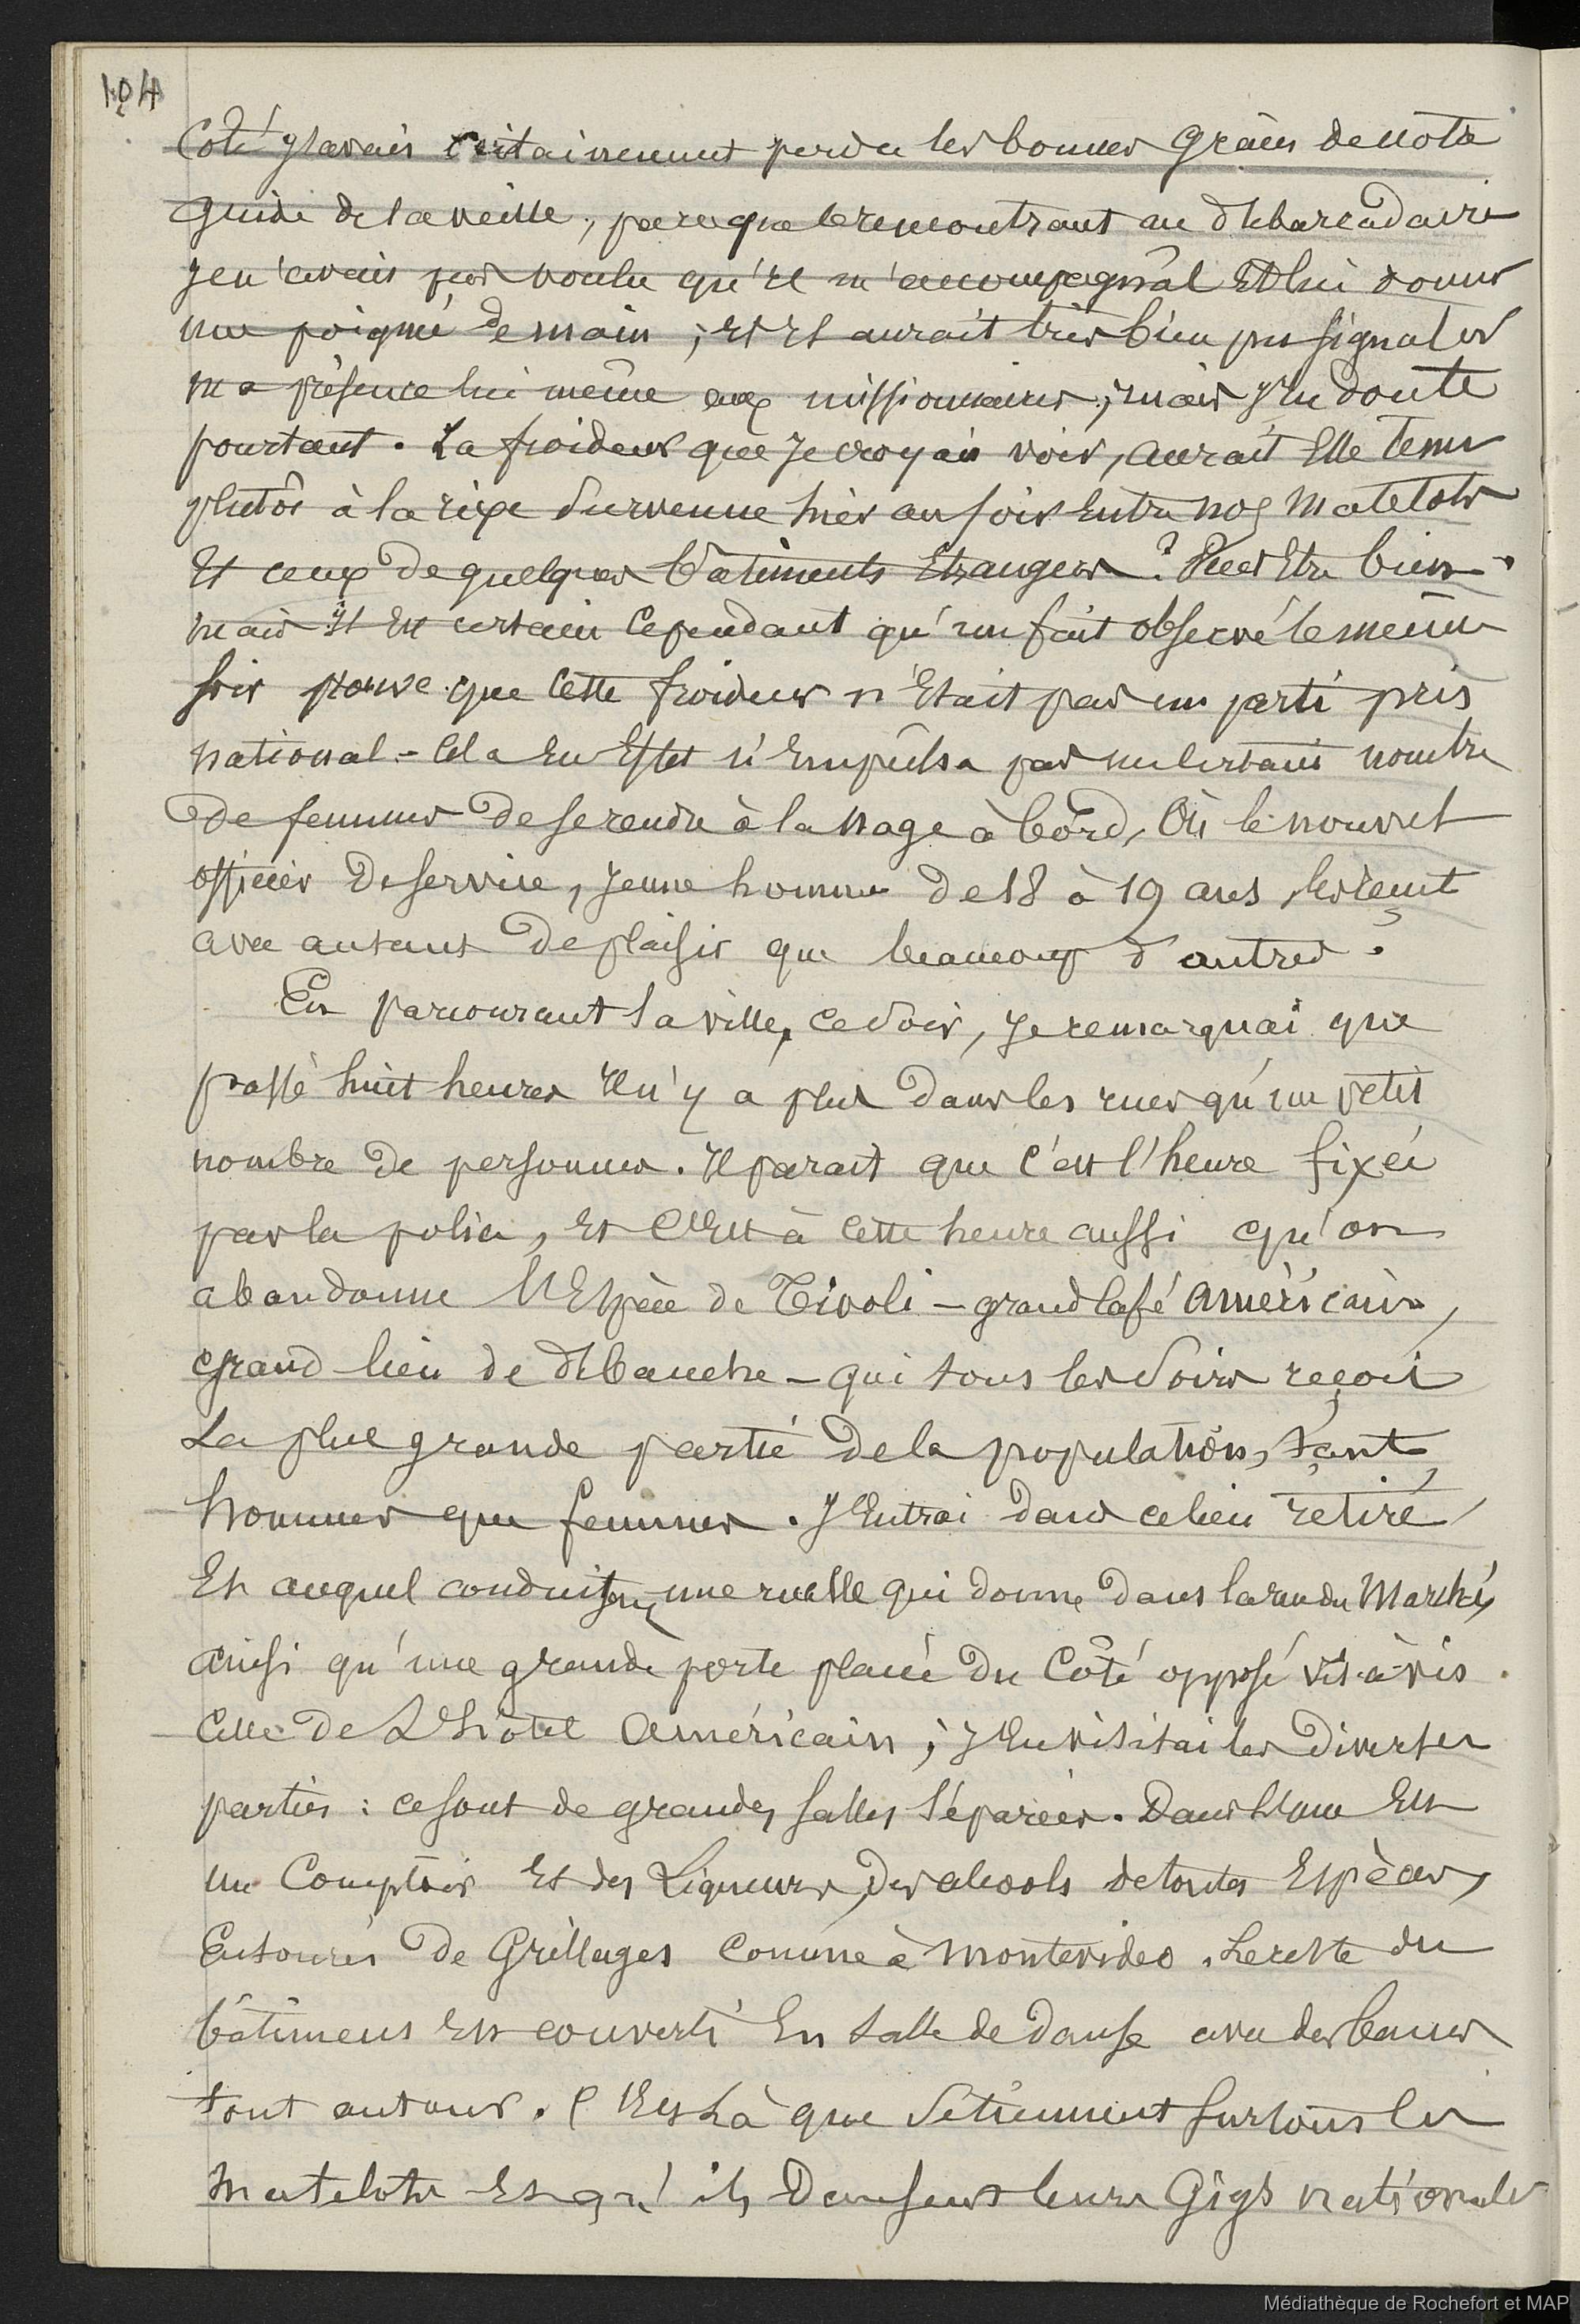 104
Coté j'avais certainement perdu les bonnes grâces de notre
guide de la veille, parceque le rencontrant au débarcadaire
je n'avais pas voulu qu'il m'accompagnât Et lui donner
une poigné de main ; Et Il aurait très bien pu signaler
ma présence lui même aux missionnaires ; mais J'en doute
pourtant. La froideur que Je croyais voir, aurait Elle tenu
plutôt à la rixe survenue hier au soir Entre nos Matelots
Et ceux de quelques bâtiments Etrangers ? Peut Etre bien.
mais Il Est certain Cependant qu'un fait observé le même
soir prouve que Cette froideur n'Etait pas un parti pris
national - Cela En Effet n'Empêcha pas un certain nombre
De femmes De se rendre à la Nage à bord, Où le nouvel
officier De service, Jeune homme De 18 à 19 ans, les reçut
avec autant De plaisir que beaucoup d'autres.
En parcourant la ville, ce Soir, Je remarquai que
passé huit heures Il n'y a plus Dans les rues qu'un petit
nombre De personnes. Il parait que C'est l'heure fixée
par la police, Et C'Est à Cette heure aussi qu'on
abandonne l'Espèce de Tivoli - grand Café Américain,
grand lieu de débauche - qui tous les Soirs reçoit
La plus grande partie De la population, tant
hommes que femmes. J'Entrai Dans ce lieu retiré
Et auquel conduisent une ruelle qui donne Dans la rue du Marché,
ainsi qu'une grande porte placée Du Côté opposé vis-à-vis
Celle De L'hôtel Américain ; J'En visitai les Diverses
parties : ce sont de grandes salles séparées. Dans l'une Est
un Comptoir Et des Liqueurs, Des alcools de toutes Espèces,
Entourés De Grillages Comme à Montevideo. Le reste du
bâtiment Est converti En salle de Danse avec des bancs
tout autour. C'Est Là que se tiennent surtout les
Matelots Et qu'ils Dansent leurs Gigs nationales
Médiathèque de Rochefort et MAP